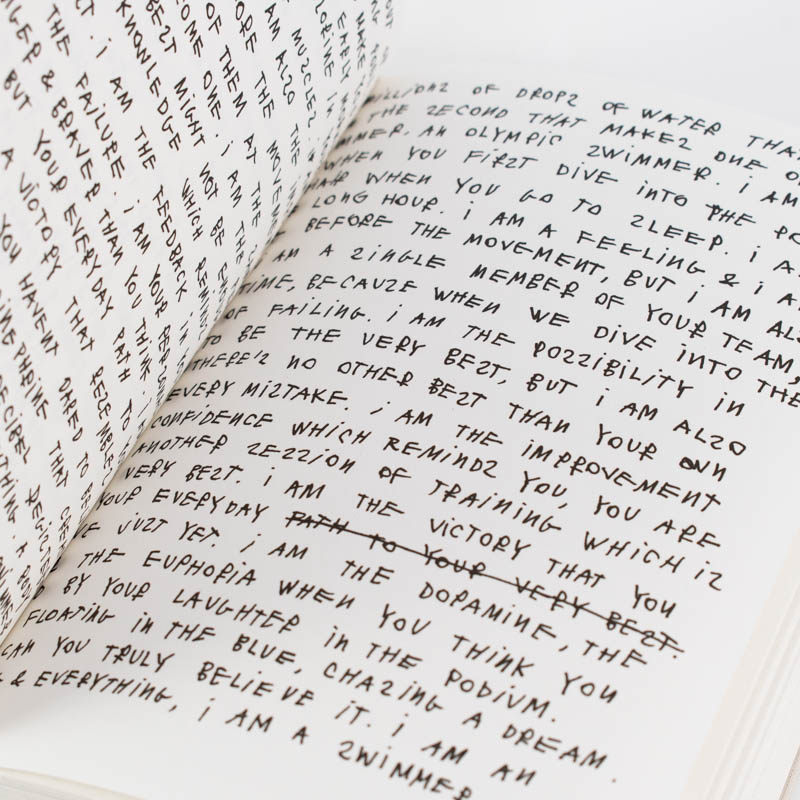 MAKE
EARLY
MUSCLES.
AM ALSO
MORE THE MOVEMEN
OF THEM AT THE
COME ONE. i AM THE
BEST MIGHT NOT BE
KNOWLEDGE WHICH REMIND
i AM THE FEEDBACK IN
THE FAILURE. i AM YOUR
& BRAVER THAN YOU THINK
BUT YOUR EVERYDAY PATH TO
A VICTORY THAT RESEMBLE
YOU HAVENT DARED TO
THAT
A
OF DROPS OF WATER THAT
THE SECOND THAT MAKES ONE OF
AN OLYMPIC SWIMMER. i AM
WHEN YOU FIRST DIVE INTO THE PO
WHEN YOU GO TO SLEEP. i A
LONG HOUR. i AM A FEELING & i A
BEFORE THE MOVEMENT, BUT i AM ALSO
AM A SINGLE MEMBER OF YOUR TEAM,
TIME, BECAUSE WHEN WE DIVE INTO THE
OF FAILING. i AM THE POSSIBILITY IN
TO BE THE VERY BEST, BUT i AM ALSO
THERE'S NO OTHER BEST THAN YOUR OWN
EVERY MISTAKE. i AM THE IMPROVEMENT
CONFIDENCE WHICH REMINDS YOU, YOU ARE
ANOTHER SESSION OF TRAINING WHICH IS
VERY BEST. i AM THE VICTORY THAT YOU
YOUR EVERYDAY PATH TO YOUR VERY BEST.
JUST YET. i AM THE DOPAMINE, THE
THE EUPHORIA WHEN YOU THINK YOU
BY YOUR LAUGHTER IN THE PODIUM.
FLOATING IN THE BLUE, CHASING A DREAM.
CAN YOU TRULY BELIEVE IT. i AM AN
& EVERYTHING, i AM A SWIMMER